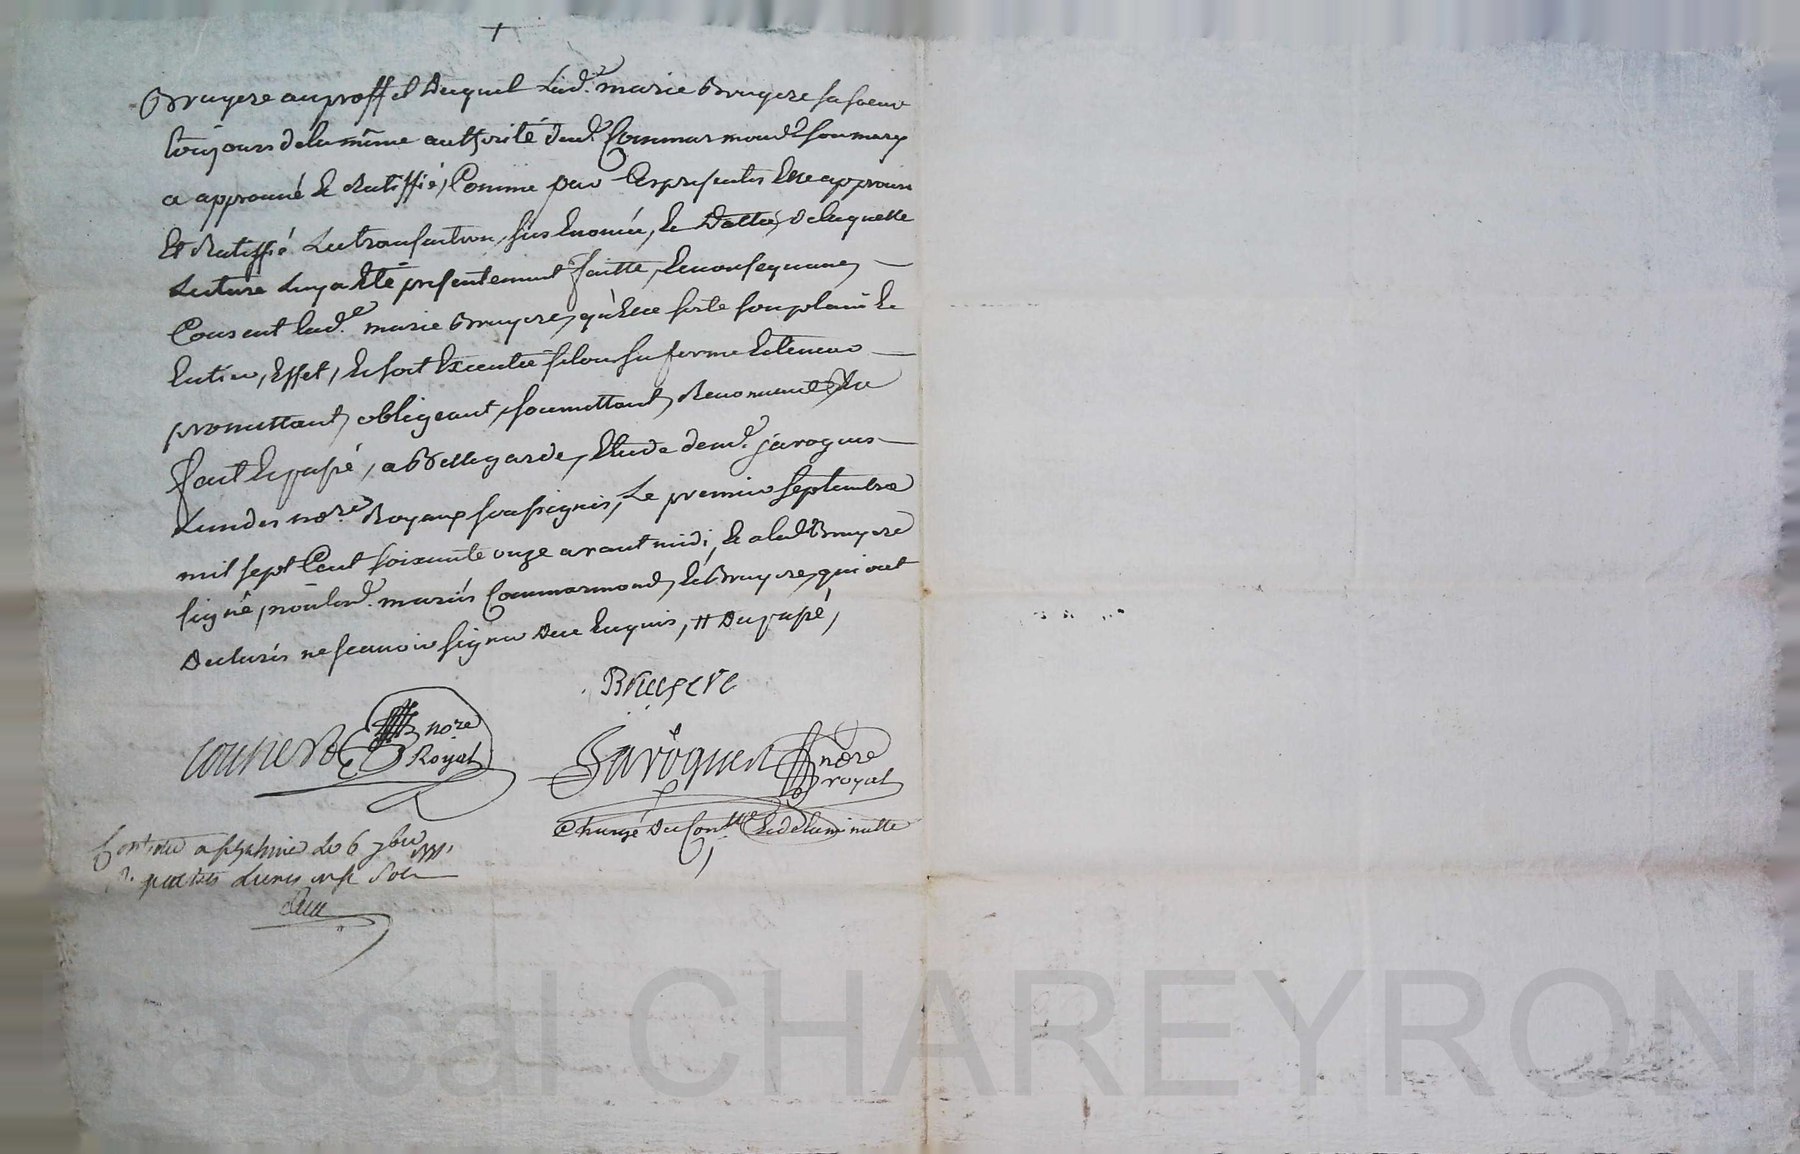 Bruyere au proffit duquel lad.e marie Bruyere sa soeur
toujours de la même authorité dud. Commarmond son mary
a approuvé et Ratiffié, Comme par Ces presentes Elle approuve
Et Ratiffié La transaction, sus Enoncée, et Dattée, de laquelle
Lecture luy a Eté presentement faitte, En consequence,
Consent lad.e marie Bruyere, qu'elle sorte son plain et
Entier, Effet, et soit Executée selon sa forme et teneur
promettant, obligeant, soumettant, Renonceant,
fait et passé, a Bellegarde, Etude de me. jaroques
L'un des no.res Royaux soussignés, Le premier Septembre
mil sept Cent soixante onze avant midi, et a led. Bruyere
signé, non lesd. mariés Commarmond, et Bruyere, qui ont
Declarés ne scavoir signer de ce Enquis, Du passé,
Bruyere
nore
Royal
Jaroques nore
royal
Chargé Du Con.lle et de la minutte
le 6 7bre 1771
livres sols